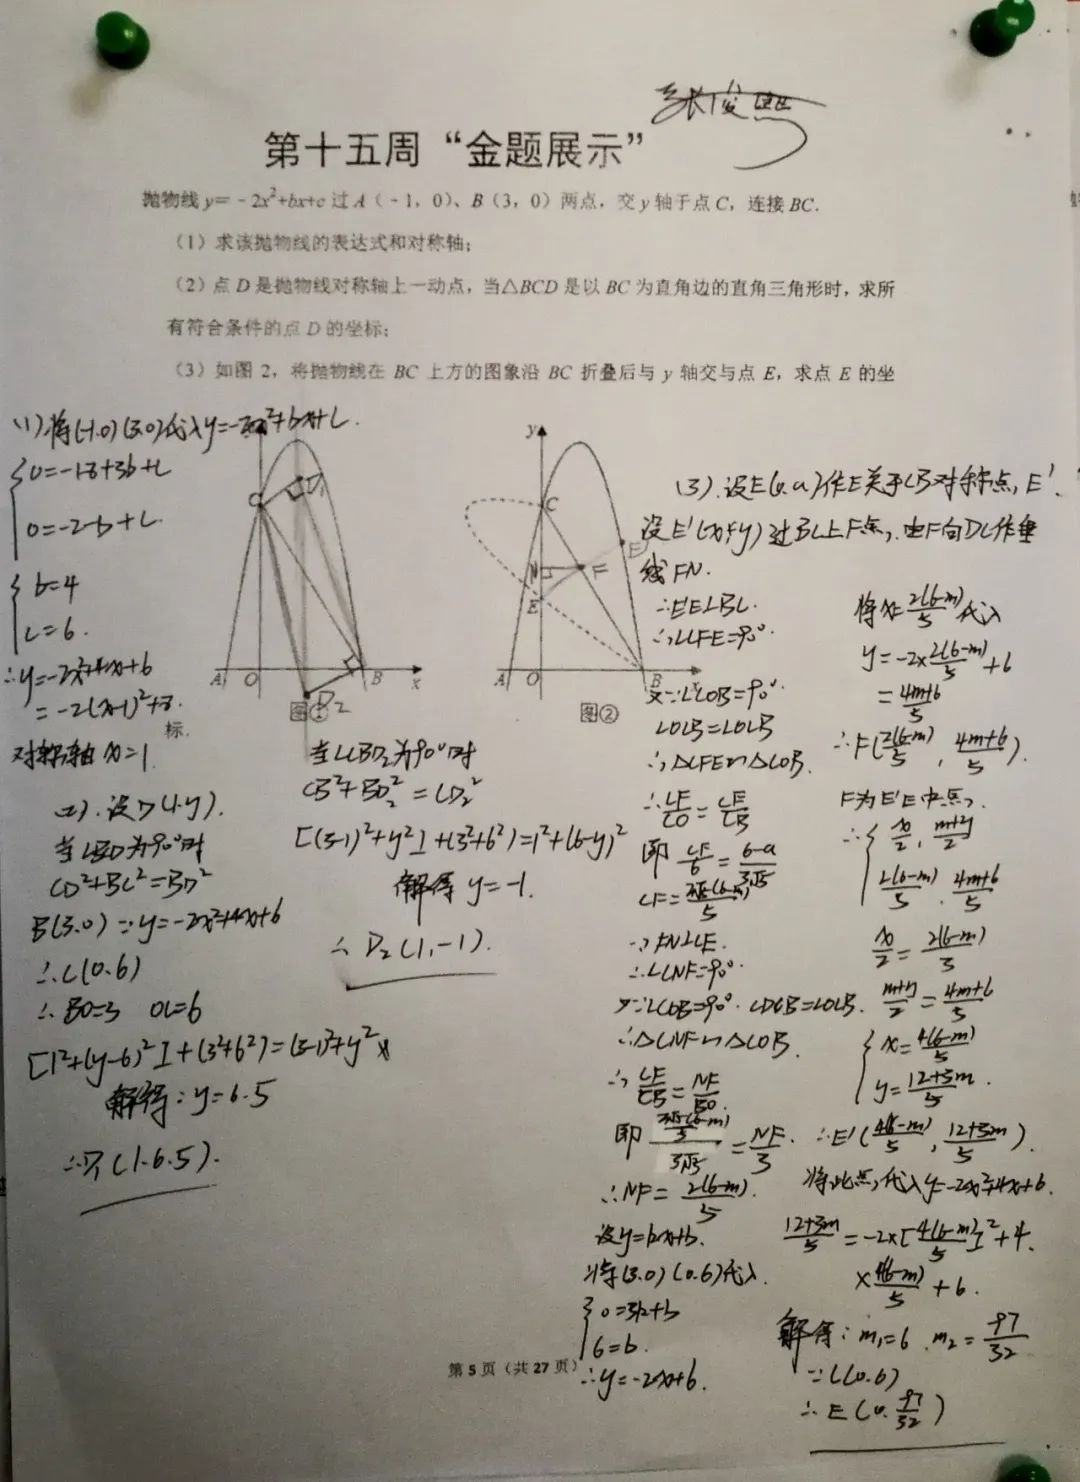 张俊熙
第十五周“金题展示”
抛物线 y=-2x²+bx+c 过 A(-1,0)、B(3,0)两点,交 y 轴于点 C,连接 BC.
(1)求该抛物线的表达式和对称轴;
(2)点 D 是抛物线对称轴上一动点,当△BCD 是以 BC 为直角边的直角三角形时,求所
有符合条件的点 D 的坐标;
(3)如图 2,将抛物线在 BC 上方的图象沿 BC 折叠后与 y 轴交与点 E,求点 E 的坐
标.
(1)将(-1.0)(3.0)代入y=-2x²+bx+c.
0=-18+3b+c
0=-2-b+c
b=4
c=6.
∴y=-2x²+4x+6
=-2(x-1)²+8.
对称轴 x=1
(2).设D(1.y).
当∠BCD为90°时
CD²+BC²=BD²
B(3.0) ∵y=-2x²+4x+6
∴C(0.6)
∴BO=3 OC=6
[1²+(y-6)²]+(3²+6²)=(3-1)²+y²
解得:y=6.5
∴D₁(1.6.5).
C D₁
A O B x
D₂
图①
当∠CBD₂为90°时
CB²+BD₂²=CD₂²
[(3-1)²+y²]+(3²+6²)=1²+(6-y)²
解得 y=-1.
∴D₂(1,-1).
y
C
E'
N F
E
A O B x
图②
(3).设E(0.a)作E关于CB对称点,E'.
设E'(x,y)过BC上F点,由F向DC作垂
线FN.
∴EE'⊥BC.
∴∠CFE=90°.
又∵∠COB=90°.
∠OCB=∠OCB
∴△CFE∽△COB.
∴CF/CO=CE/CB
即 CF/6=6-a/3√5
CF=
∵FN⊥CE.
∴∠CNF=90°.
又∵∠COB=90°.∠OCB=∠OCB.
∴△CNF∽△COB.
∴CF/CB=NF/BO.
即 =NF/3.
∴NF=2(6-m)/5.
设y=kx+b.
将(3.0)(0.6)代入.
0=3k+b
6=b.
∴y=-2x+6.
将x=2(6-m)/5代入
y=-2×2(6-m)/5+6
=4m+6/5
∴F(2(6-m)/5,4m+6/5).
F为E'E中点,
∴ x/2,m+y/2
2(6-m)/5.4m+6/5
x/2=2(6-m)/5
m+y/2=4m+6/5
x=4(6-m)/5
y=12+3m/5.
∴E'(4(6-m)/5,12+3m/5).
将此点,代入y=-2x²+4x+6.
12+3m/5=-2×[4(6-m)/5]²+4.
×4(6-m)/5+6.
解得:m₁=6.m₂=97/32
∵C(0.6)
∴E(0.97/32)
第 5 页(共 27 页)